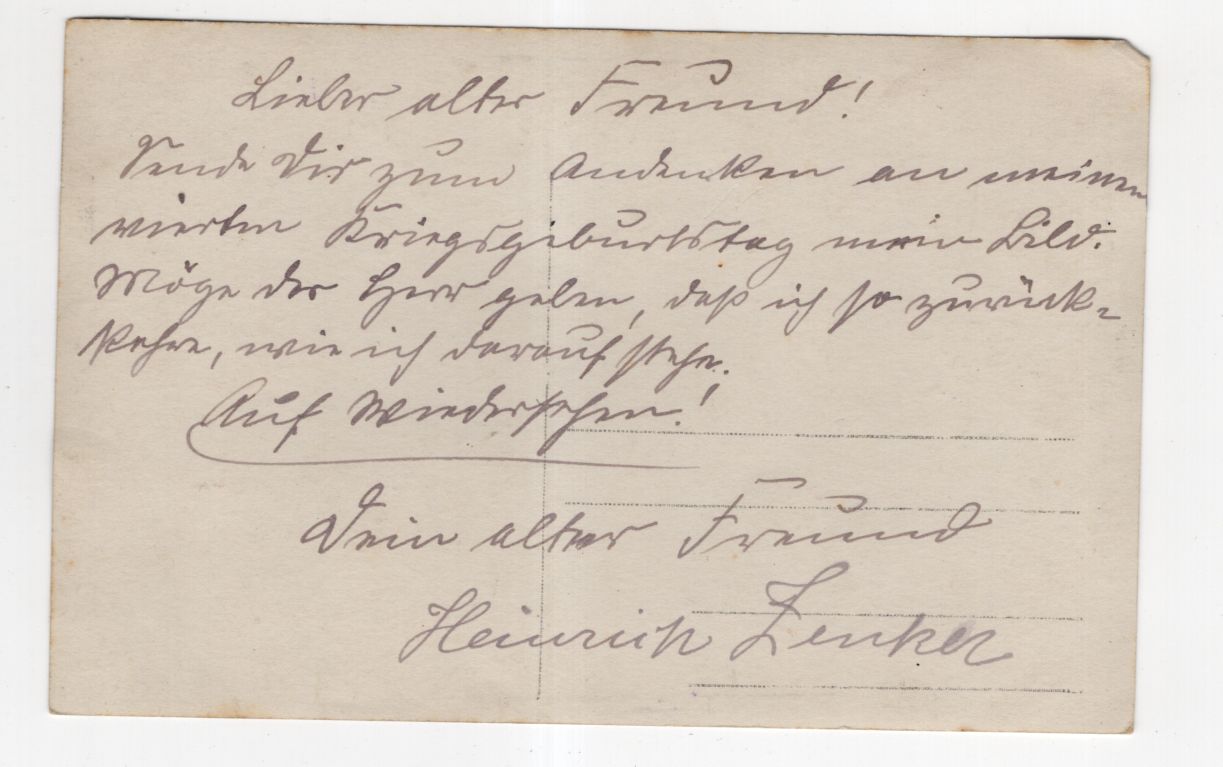 Lieber alter Freund!
Sende Dir zum Andenken an meinen
vierten Kriegsgeburtstag mein Bild.
Möge der Herr geben, daß ich so zurück-
kehre, wie ich darauf stehe.
Auf Wiedersehen!
Dein alter Freund
Heinrich Zenker